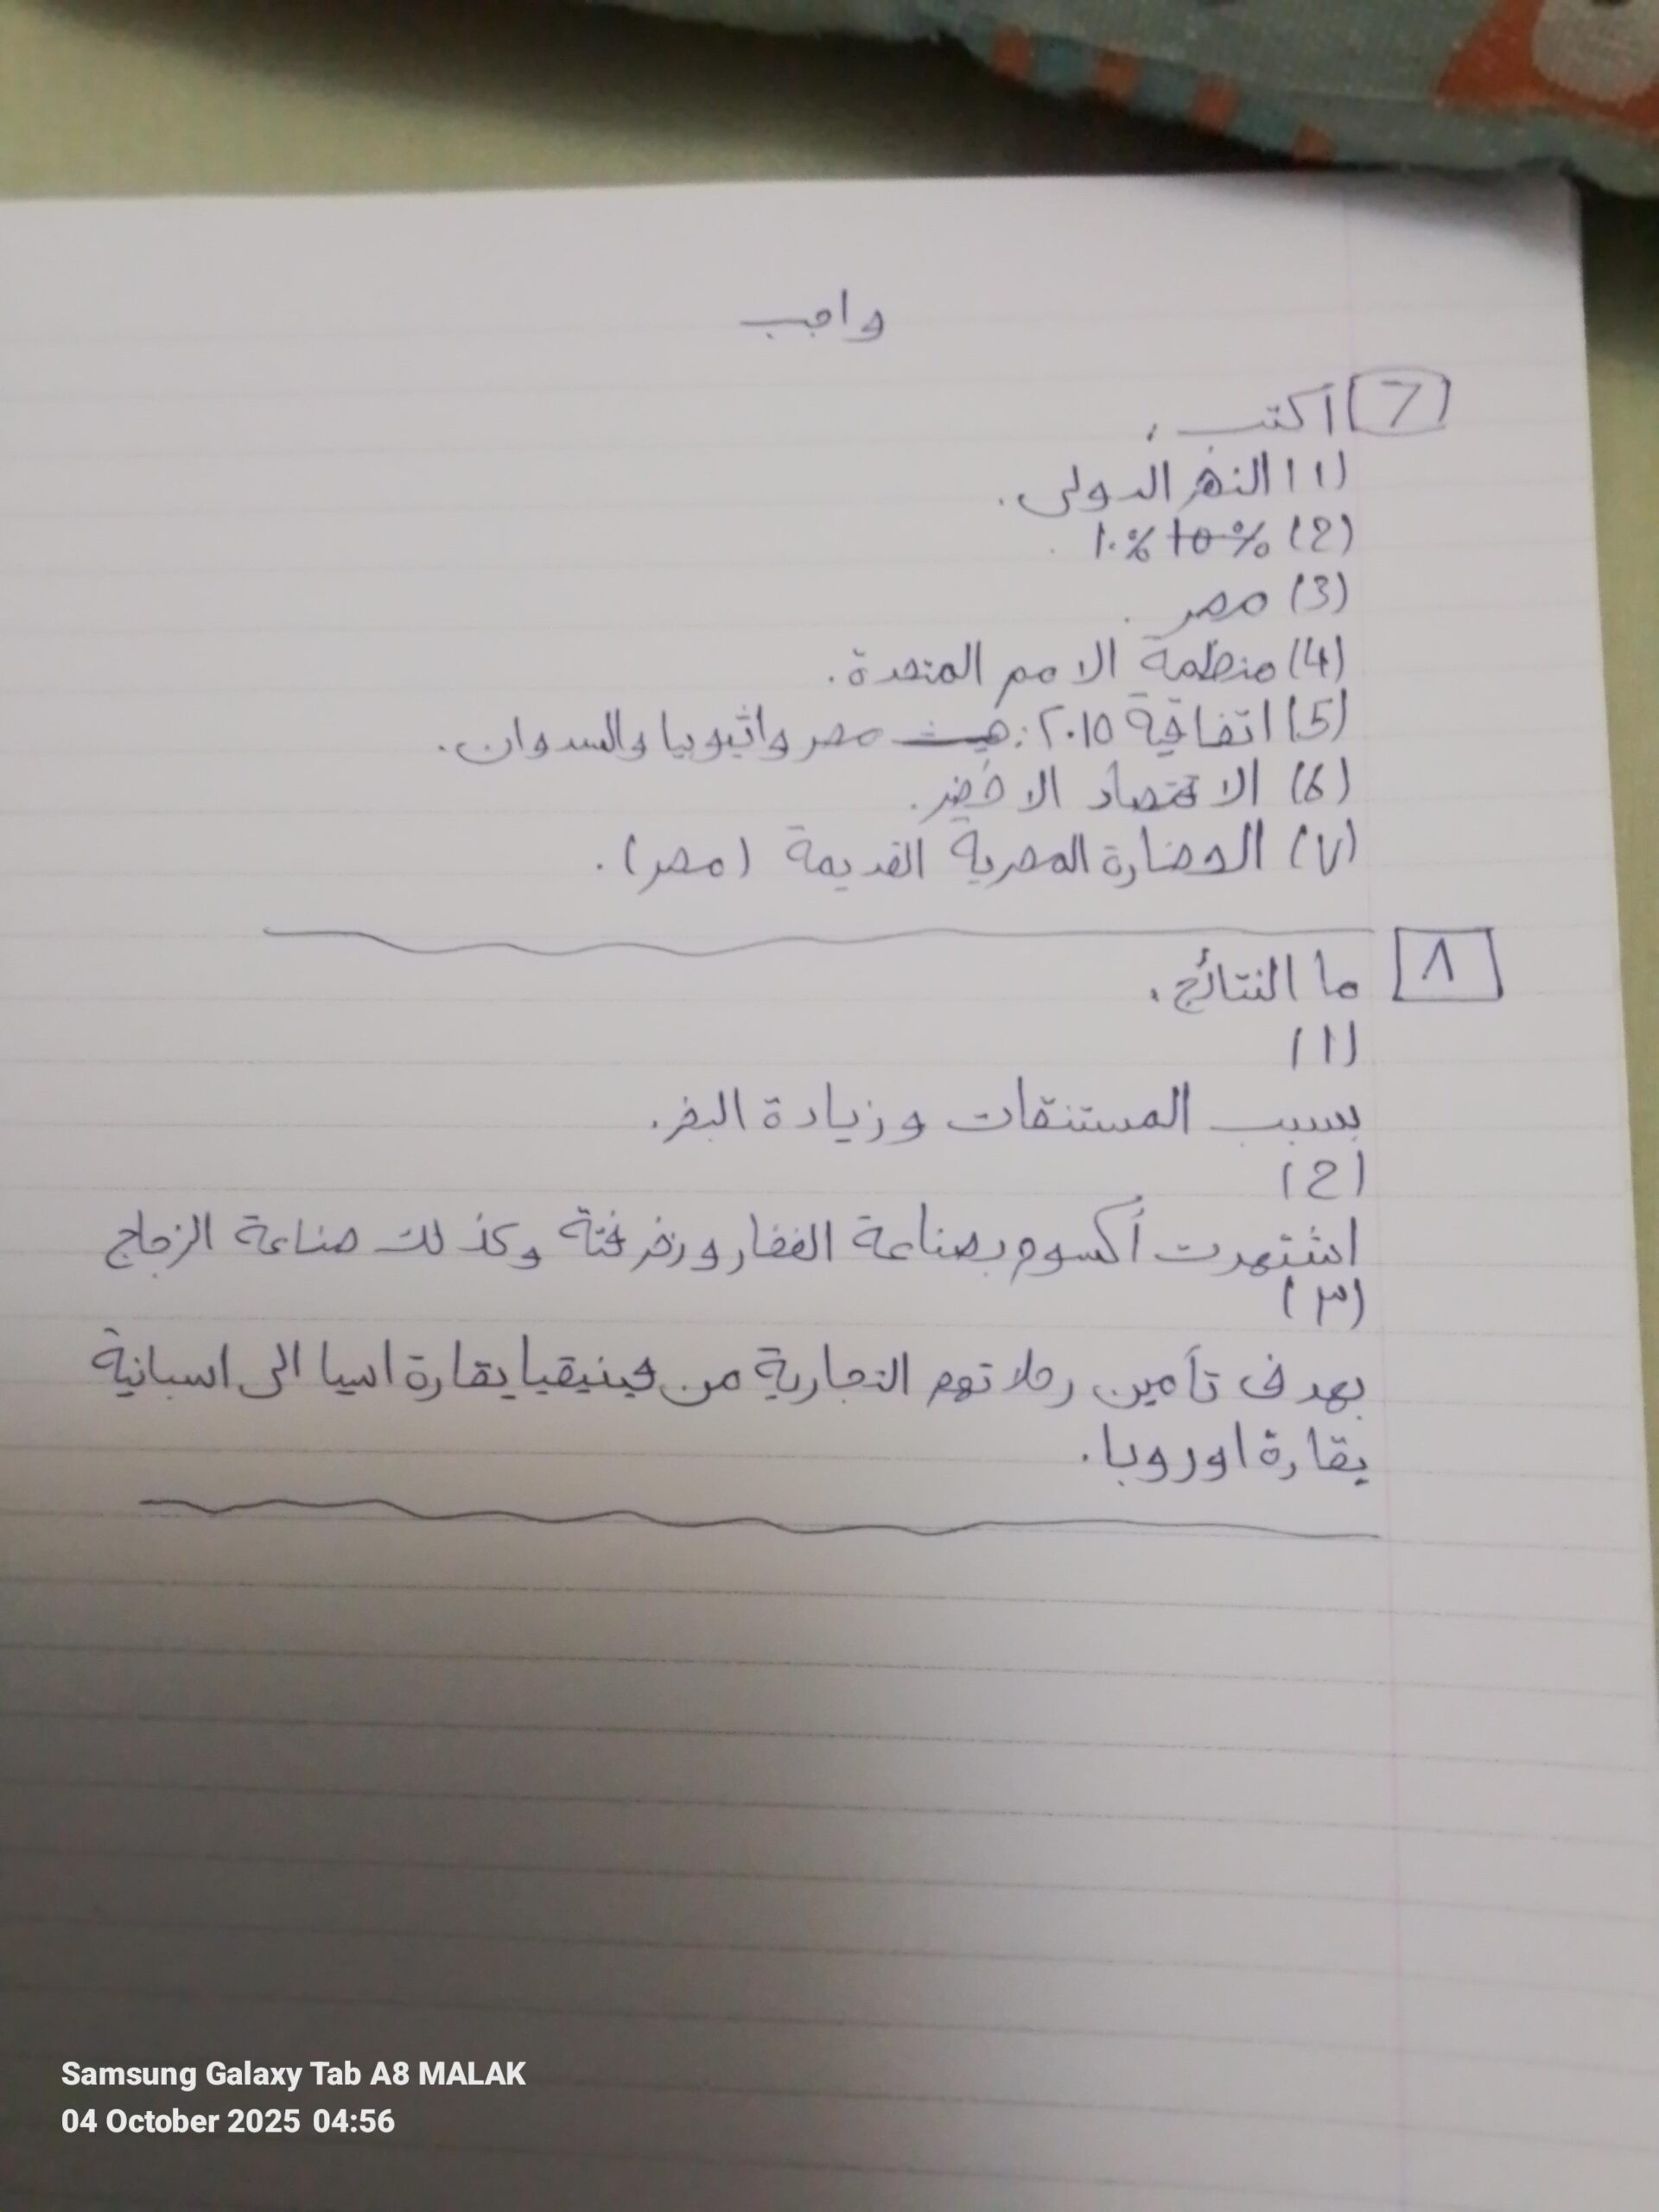 واجب
7 أكتب :
(1) النهر الدولى.
(2) 10% ١٠%
(3) مصر .
(4) منظمة الامم المتحدة.
(5) اتفاقية ٢٠١٥: مصر واثيوبيا والسدوان.
(6) الاقتصاد الاخضر.
(٧) الحضارة المصرية القديمة (مصر).
٨ ما النتائج :
(١)
بسبب المستنقات وزيادة البخر.
(2)
اشتهرت أكسوم بصناعة الفخار وزخرفتة وكذلك صناعة الزجاج
(٣)
بهدف تأمين رحلاتهم التجارية من فينيقيا بقارة اسيا الى اسبانية
بقارة اوروبا.
Samsung Galaxy Tab A8 MALAK
04 October 2025 04:56